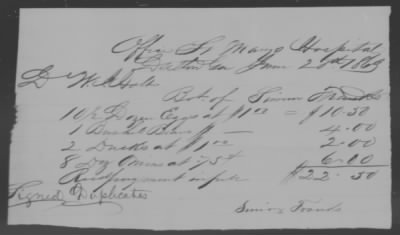 Office St Marys Hospital
Dalton Ga June 20th 1863
Dr W L Holt
Bot of Simon Francis
10 1/2 Dozen Eggs at $1.00 = $10.50
1 Bushel Beans $ — 4.00
2 Ducks at $1.00 2.00
8 Doz Onions at 75¢ 6.00
Recd payment in full $22.50
Signed Duplicates
Simon Francis